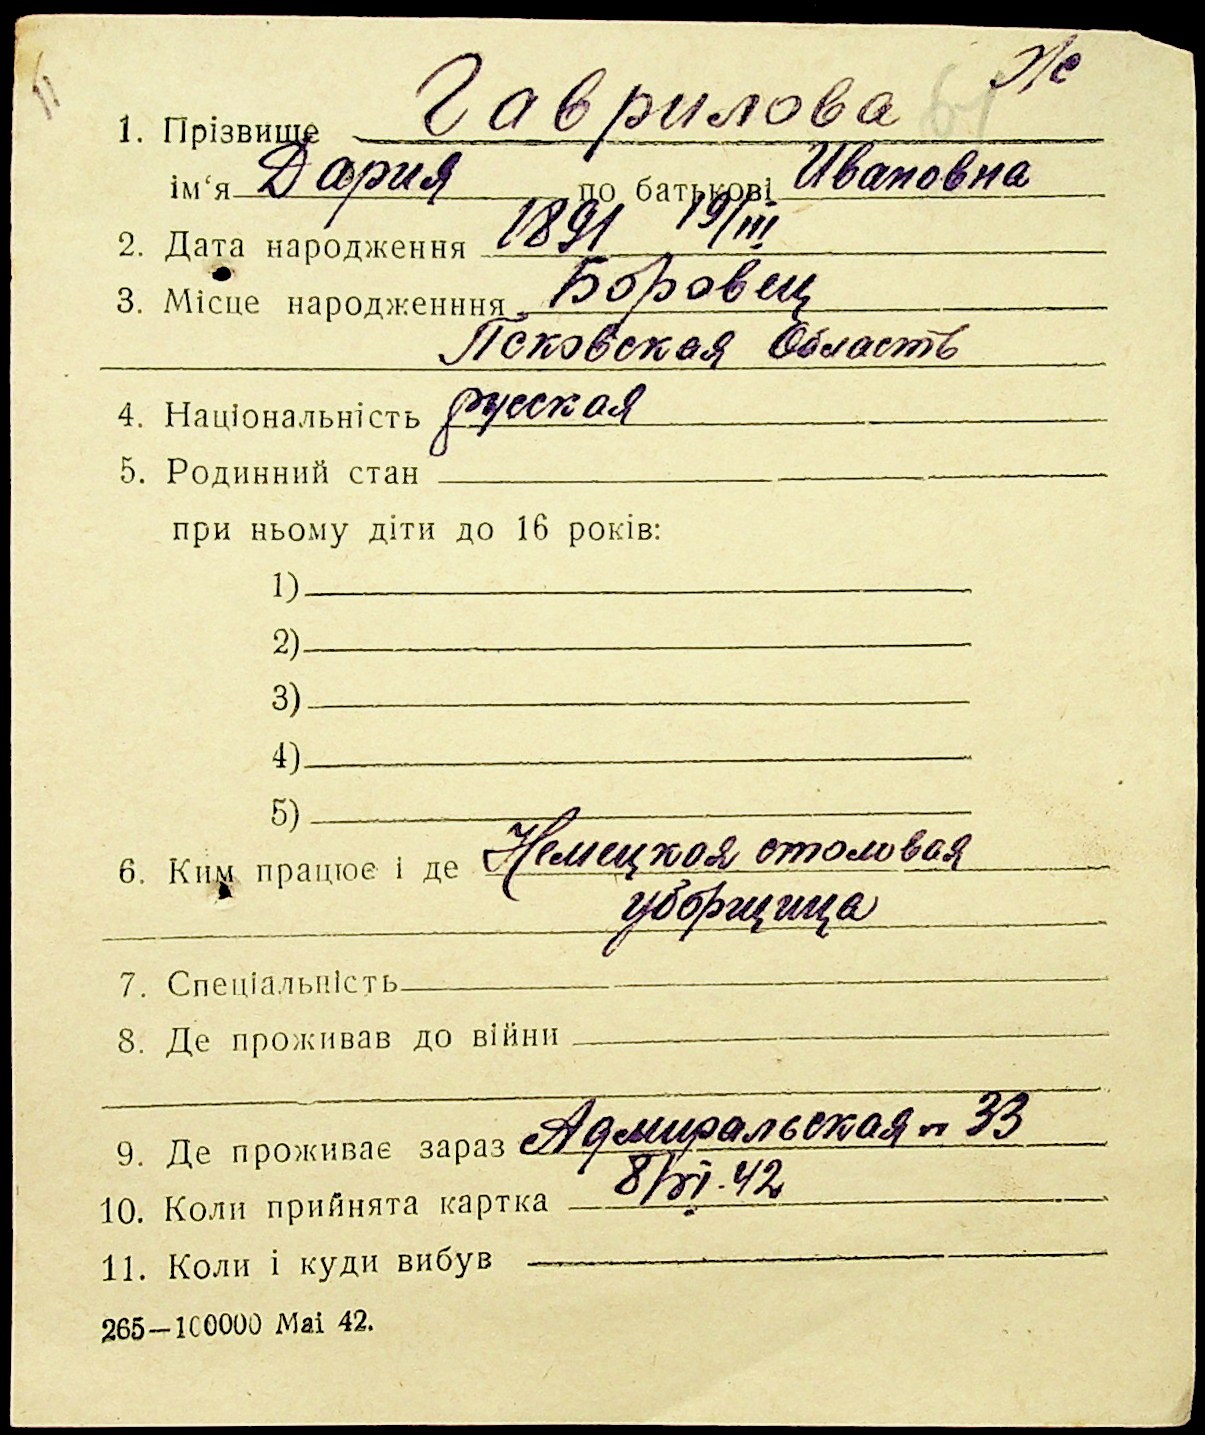 Же
1. Прізвище Гаврилова
ім‘я Дария по батькові Ивановна
2. Дата народження 1891 19/III
3. Місце народженння Боровец
Псковская Область
4. Національність русская
5. Родинний стан
при ньому діти до 16 років:
1)
2)
3)
4)
5)
6. Ким працює і де Немецкая столовая
уборщица
7. Спеціальність
8. Де проживав до війни
9. Де проживає зараз Адмиральская 33
10. Коли прийнята картка 8/VI.42
11. Коли і куди вибув
265—100000 Mai 42.